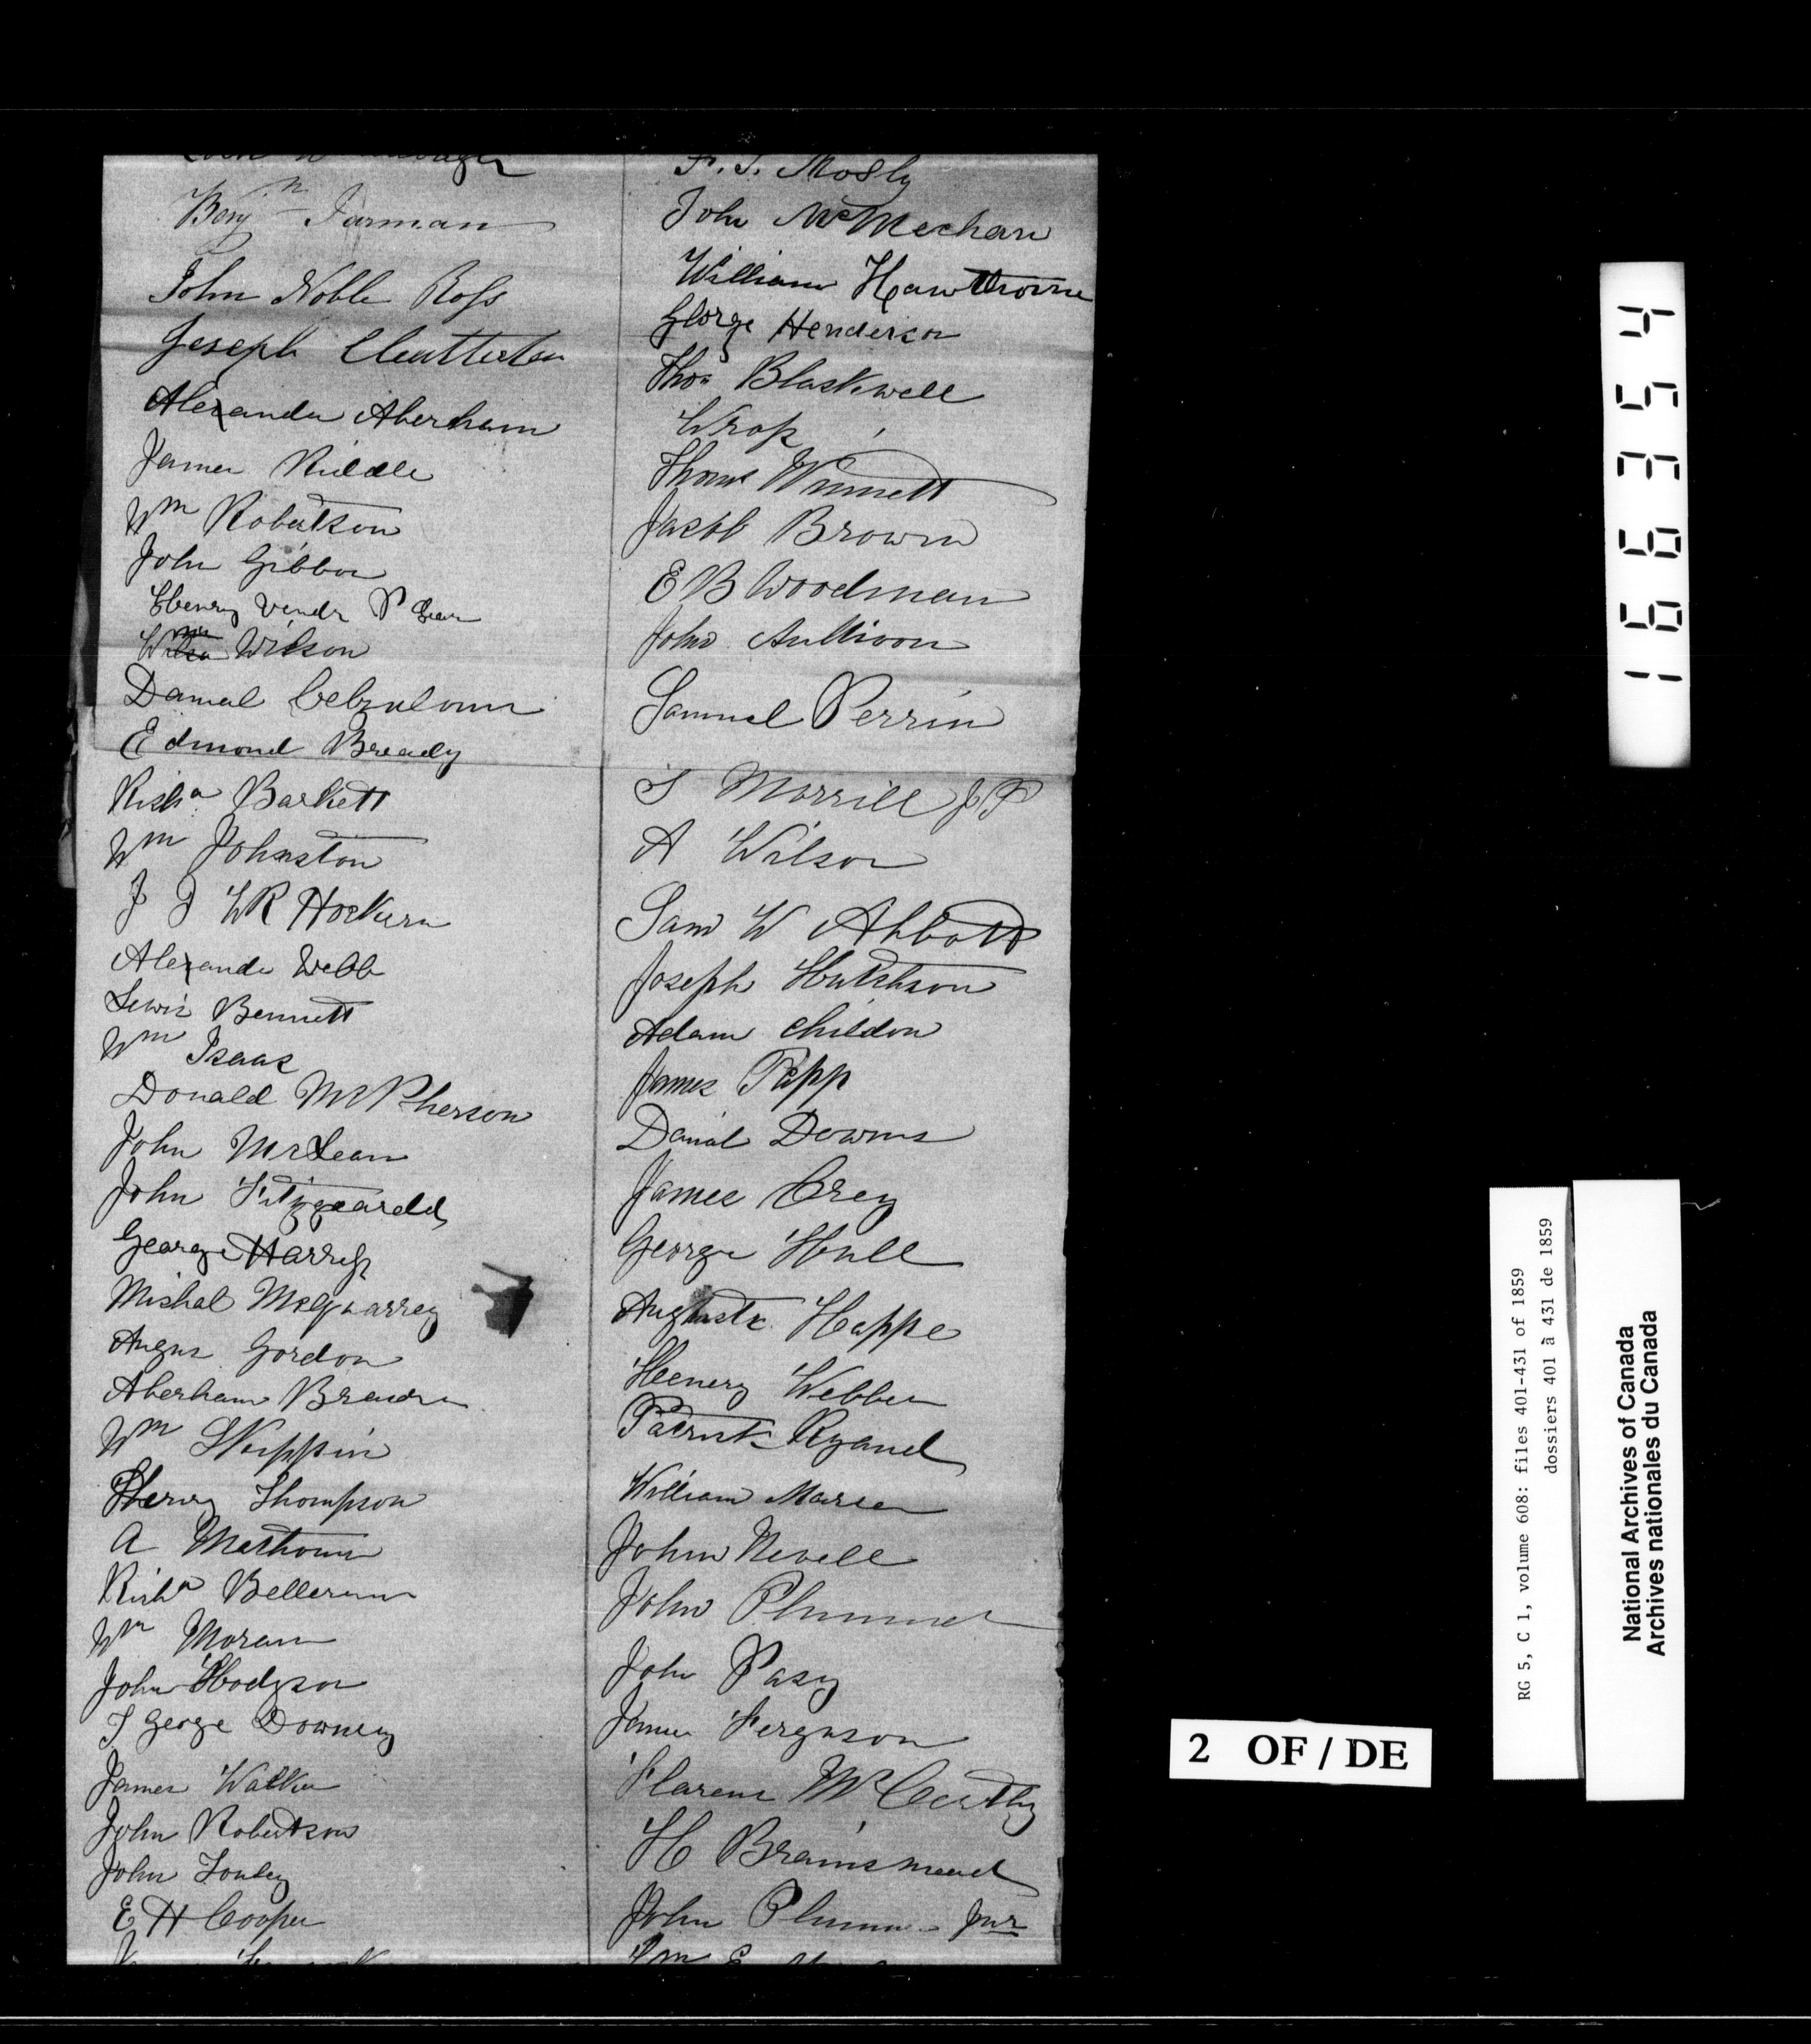 Benjn Jarman
John Noble Ross
Joseph Chatterton
Alexander Aberham
James Riddle
Wm Robertson
John Gibbon
Henry
Wilson
Danial
Edmond Bready
Richa Barkett
Wm Johnston
J
Alexande Webb
Lewis Bennett
Wm Isaac
Donald McPherson
John McLean
John Fitzgearld
George Harress
Mishal McQuarrey
Angus Gordon
Aberham
Wm Skippin
Henry Thompson
A
Richa
Wm Moran
John Hodgson
T George Downey
James Walker
John Robertson
John
E H Cooper
F. T. Mosly
John McMechan
William Hawthorne
George Henderson
Thos Blackwell
Thoms Winnett
Jacob Brown
E B Woodman
John
Samuel Perrin
S Morrill J P
A Wilson
Sam W Abbott
Joseph Hutchson
Adam Childon
James Papp
Danial Downs
James Crey
George Hull
Happe
Heenery Webber
Patrick Ryand
William
John Nevell
John Plummer
John Pasy
James Ferguson
McCarthy
H
John Plummer Jnr
166354
2 OF / DE
RG 5, C 1, volume 608: files 401-431 of 1859
dossiers 401 à 431 de 1859
National Archives of Canada
Archives nationales du Canada